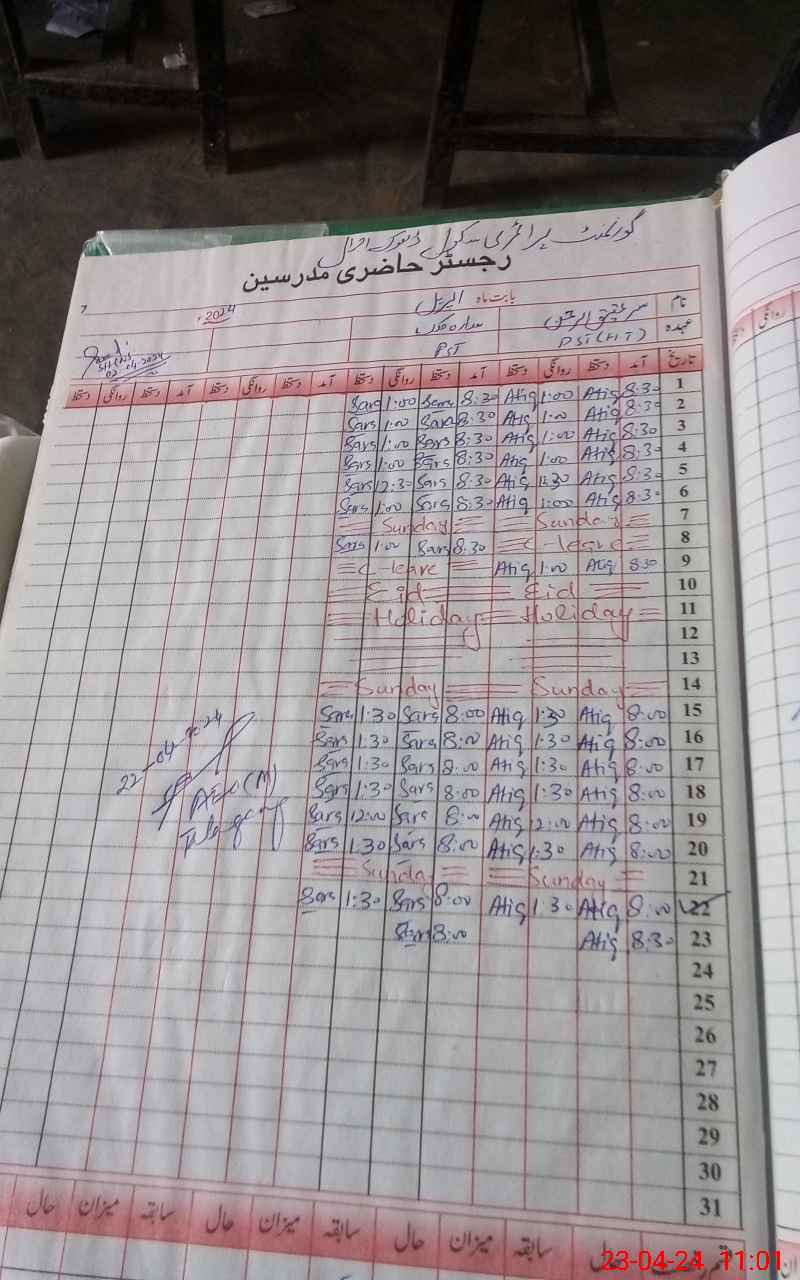 گورنمنٹ پرائمری سکول ڈھوک اعوان
رجسٹر حاضری مدرسین
7
نام
بابت ماہ اپریل 2024ء
عہدہ PST(HT) PST
02-04-2024
تاریخ آمد دستخط روانگی دستخط آمد دستخط روانگی دستخط آمد دستخط روانگی دستخط آمد دستخط روانگی دستخط
1 8:30 Atiq 1:00 Atiq 8:30 Sars 1:00 Sars
2 8:30 Atiq 1:00 Atiq 8:30 Sars 1:00 Sars
3 8:30 Atiq 1:00 Atiq 8:30 Sars 1:00 Sars
4 8:30 Atiq 1:00 Atiq 8:30 Sars 1:00 Sars
5 8:30 Atiq 12:30 Atiq 8:30 Sars 12:30 Sars
6 8:30 Atiq 1:00 Atiq 8:30 Sars 1:00 Sars
7 Sunday Sunday
8 C-leave 8:30 Sars 1:00 Sars
9 8:30 Atiq 1:00 Atiq C-leave
10 Eid Eid
11 Holiday Holiday
12
13
14 Sunday Sunday
15 8:00 Atiq 1:30 Atiq 8:00 Sars 1:30 Sars
16 8:00 Atiq 1:30 Atiq 8:00 Sars 1:30 Sars
17 8:00 Atiq 1:30 Atiq 8:00 Sars 1:30 Sars
18 8:00 Atiq 1:30 Atiq 8:00 Sars 1:30 Sars
19 8:00 Atiq 12:00 Atiq 8:00 Sars 12:00 Sars
20 8:00 Atiq 1:30 Atiq 8:00 Sars 1:30 Sars
21 Sunday Sunday
22 8:00 Atiq 1:30 Atiq 8:00 Sars 1:30 Sars
23 8:30 Atiq 8:00 Sars
24
25
26
27
28
29
30
31
22-04-2024
AEO (M)
Talagang
حال سابقہ میزان حال سابقہ میزان حال سابقہ میزان حال
23-04-24 11:01